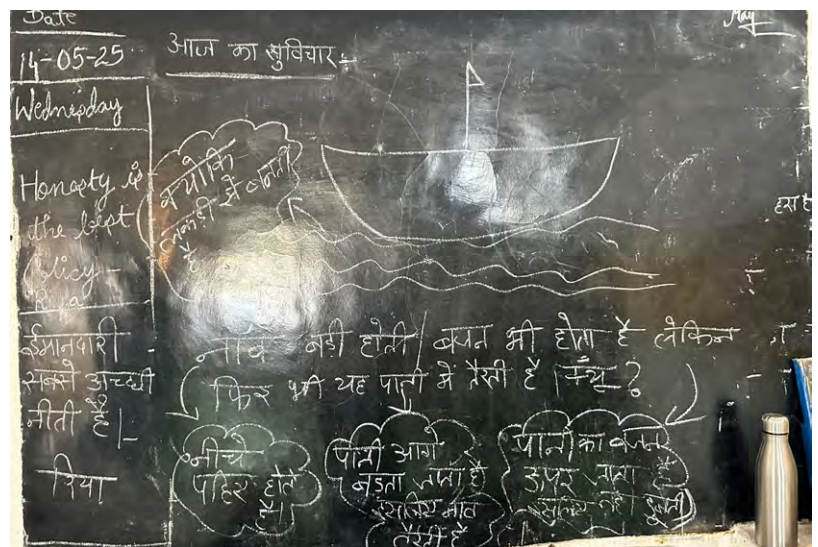 Date
14-05-25
Wednesday
Honesty is
the best
policy -
Riya
ईमानदारी -
सबसे अच्छी
नीती है।-
रिया
May
आज का सुविचार :-
क्योकि
लकड़ी से बनती
है
नावे बड़ी होती / वजन भी होता है लेकिन
फिर भी यह पानी में तैरती है। क्यूं ?
नीचे
पहिए होते
है।
पानी आगे
बड़ता जाता है
इसलिए नाव
तैरती है
पानी का वजन
ऊपर जाता है
इसलिए नही डूबती